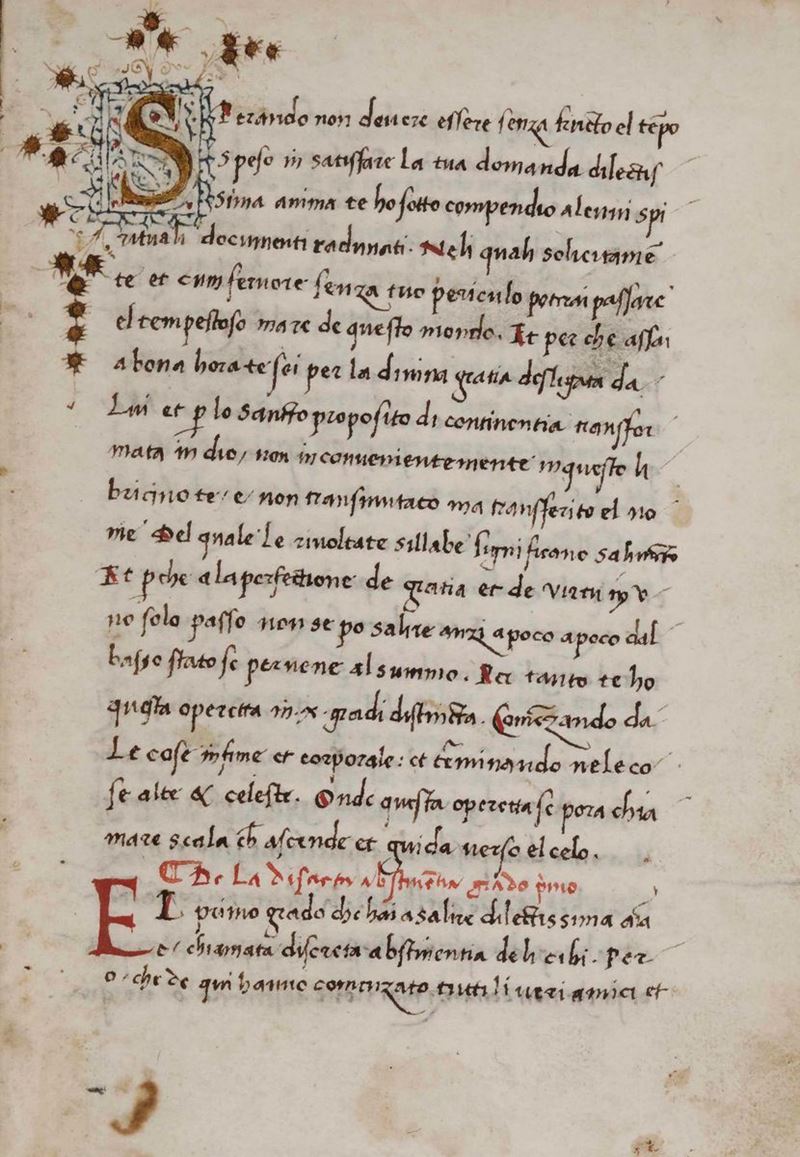 SPerando non devere essere senza fructo el tēpo
speso in satisfare la tua domanda dilectis
sima anima te ho sotto compendio alcuni spi
rituali documenti radunati. Neli quali solicitamē
te et cum fervore senza tuo periculo potrai passare
el tempestoso mare de questo mondo. Et per che assai
a bona hora te sei per la divina gratia desligata da
Lui et p̲ lo sancto proposito di continentia transfor
mata in dio, non inconvenientemente in questo li
bricino te / e / non transmutato ma transferito el no
me Del quale le rivoltate sillabe significano
Et p̲che a la perfectione de gratia et de virtu in v
no solo passo non se po salire anzi a poco a poco dal
basso stato se pervene al summo. Per tanto te ho
questa operetta in .x. gradi distincta. Comēzando da
Le cose infime et corporale: et tēminando nele co
se alte & celeste. Onde questa operetta se pora chia
mare scala ch̄ ascende et guida verso el celo.
De La discreta abstinētia grado p̄mo
EL primo grado che hai a salire dilectissima aīa
e / chiamata discreta abstinentia deli cibi. Per
o / che de qui hanno comenzato tutti li ueri amici et